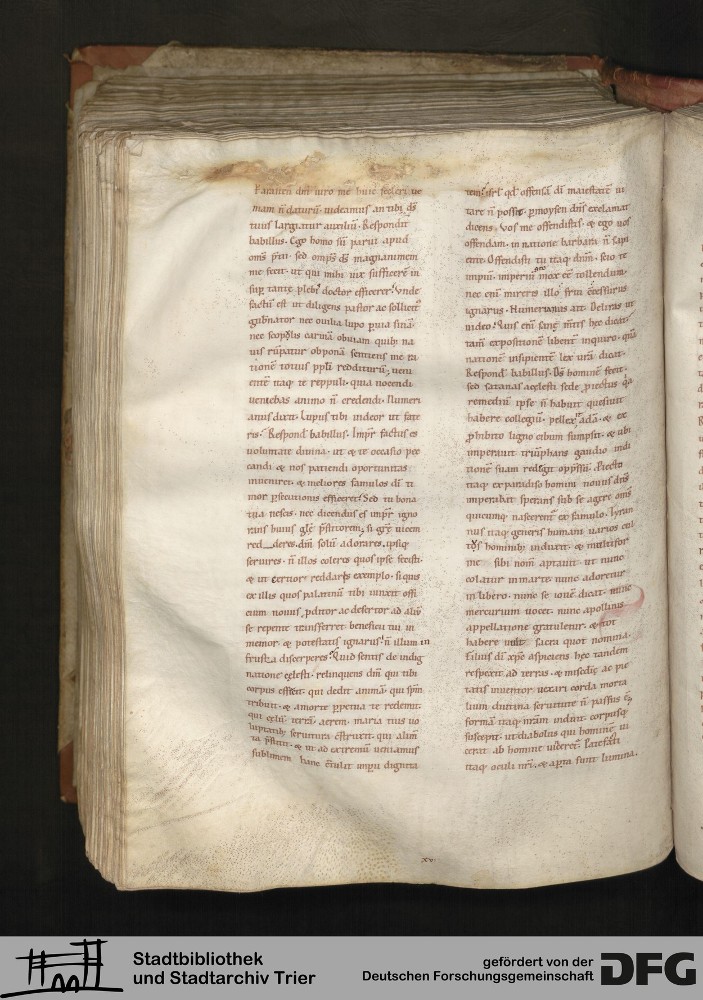 mam n̄ daturū. uideamus an tibi ds̄
tuus largiatur auxiliū. Respondit
babillus. Ego homo sū paruꝰ apud
oms̄ p̄tin. sed omps̄ ds̄ magnanimem
me fecit. ut qui mihi uix sufficere in
sup tante plebi doctor efficerer. Vnde
factū est ut diligens pastor ac sollicitꝰ
gubnator nec ouilia lupo puia sinā.
nec scopulis carinā obuiam quib; na
uis rūpatur obponā. sentiens me ra
tionē totius ppli redditurū; ueni
entē itaq; te reppuli. quia nocendi
ueniebas animo n̄ credendi. Numeri
anus dixit. Lupus tibi uideor ut fate
ris. Respond babillus. Impr̄ factus es
uoluntate diuina. ut & te occasio pec
candi & nos patiendi oportunitas
inueniret. & meliores famulos di ti
mor psecutionis efficeret. Sed tu bona
tua nescis. nec dicendus es impr̄ igno
rans huius gl̄e p̄stitorem; si gr̄e uicem
red deres. dm̄ solū adorares. ipsiq;
seruires. n̄ illos coleres quos ipse fecisti.
& ut certior reddaris exemplo. si quis
ex illis quos palatinū tibi iunxit offi
cium nouus pditor ac desertor ad aliū
se repente transferret beneficii tui in
memor. & potestatis ignarus. n̄ illum in
frusta discerperes. Quid sentis de indig
natione celesti. relinquens dm̄ qui tibi
corpus effecit. qui dedit animā. qui spm̄
tribuit. & amorē ppetua te redemit.
qui celū. terrā. aerem. maria tuis uo
luptatib; seruitura cstruxit. qui alim̄
ta p̄stitit. & ut ad extremū ueniamus
sublimem hanc ctulit impii dignita
tem. frs̄ qd offensā di maiestatē ui
tare n̄ possit. p moysen dn̄s exclamat
dicens. Vos me offendistis. & ego uos
offendam. in natione barbara n̄ sapi
ente. Offendisti tu itaq; dnm̄. scio te
impiū. imperiū quoq; mox ee tollendum.
nec eni mireris illo frui ee cessurus
ignarus. Numerianus ait. Deliras ut
uideo. Quis eni sane mtis hec dicat.
tam̄ expositionē libent inquiro. quā
nationē insipientē lex ura dicat.
Respond babillus. Ds̄ hominē fecit.
sed satanas a celesti sede piectus qa
remediū ipse n̄ habuit quesiuit
habere collegiū. pellexit adā. & ex
phibito ligno cibum sumpsit. & ubi
imperauit triūphans gaudio indi
tionē suam redegit oppssū. Piecto
itaq; ex paradiso homini nouus dn̄s
imperabat sperans sub se agere oms̄
quicumq; nascerent ex famulo. Tyran
nus itaq; generis humani uarios cul
tus hominib; induxit. & multifor
me sibi nom̄ aptauit. ut nunc
colatur in marte. nunc adoretur
in libero. nunc se iouē dicat. nunc
mercurium uocet. nunc apollinis
appellatione gratuletur. & tot
habere uult sacra quot nomina.
Filius di xpc aspiciens hec tandem
respexit ad terras. & miscdie ac pie
tatis inuentor uexari corda morta
lium diutina seruitute n̄ passus ē.
formā itaq; nram induit. corpusq;
suscepit. ut diabolus qui hominē ui
cerat ab homine uiceret. Patefacti
itaq; oculi nri. & apta sunt lumina.
xv
Stadtbibliothek
und Stadtarchiv Trier
gefördert von der
Deutschen Forschungsgemeinschaft
DFG